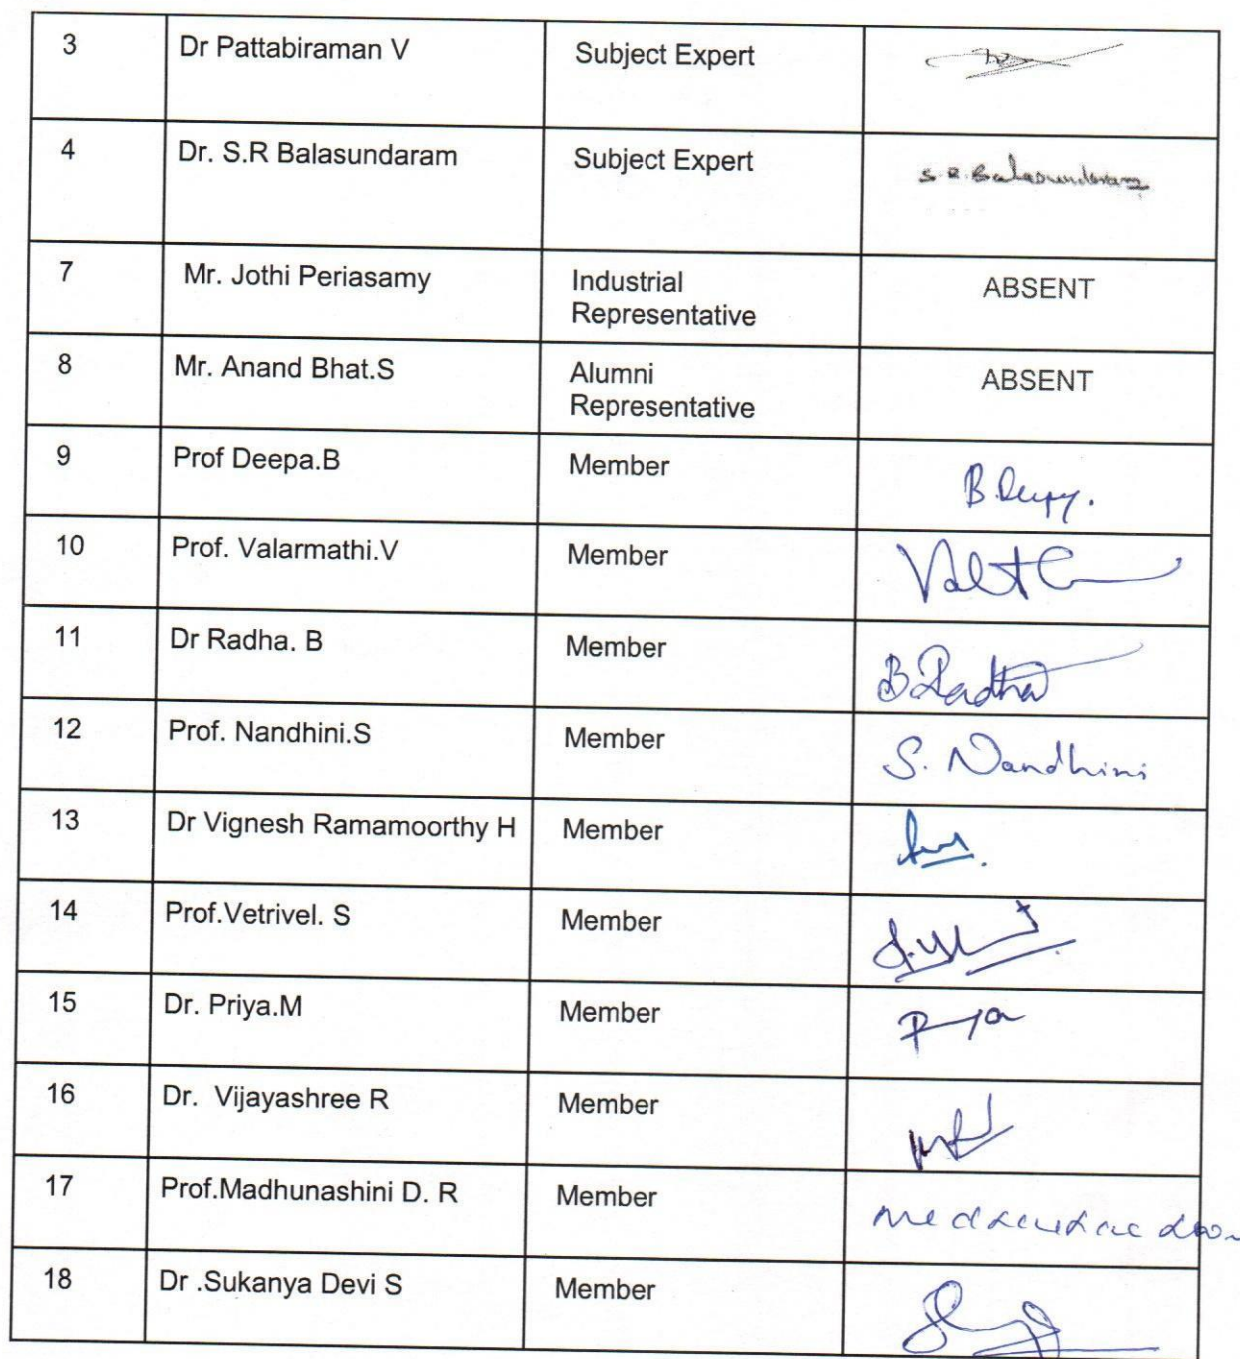 3 Dr Pattabiraman V Subject Expert
4 Dr. S.R Balasundaram Subject Expert S.R.Balasundaram
7 Mr. Jothi Periasamy Industrial Representative ABSENT
8 Mr. Anand Bhat.S Alumni Representative ABSENT
9 Prof Deepa.B Member B.Deepa.
10 Prof. Valarmathi.V Member
11 Dr Radha. B Member B.Radha
12 Prof. Nandhini.S Member S. Nandhini
13 Dr Vignesh Ramamoorthy H Member
14 Prof.Vetrivel. S Member
15 Dr. Priya.M Member Priya
16 Dr. Vijayashree R Member
17 Prof.Madhunashini D. R Member
18 Dr .Sukanya Devi S Member